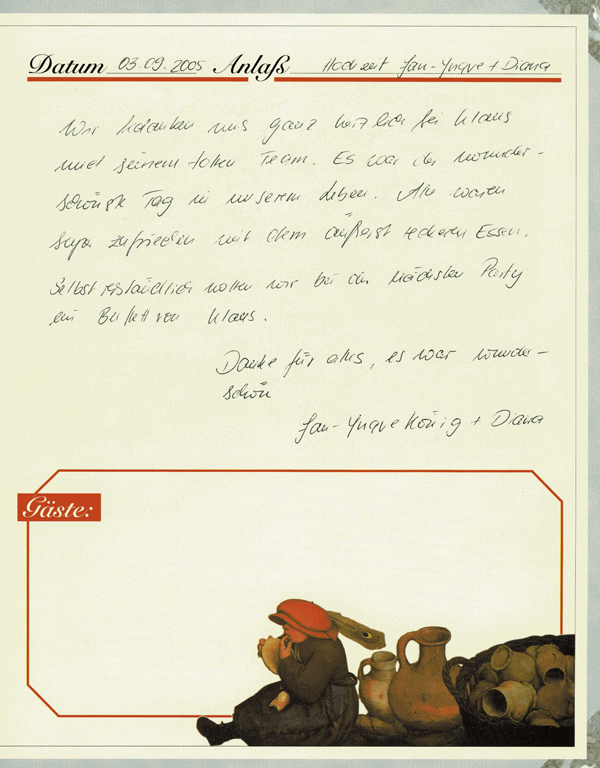 Datum 03.09.2005 Anlaß Hochzeit Jan-Yngve + Diana
Wir bedanken uns ganz herzlich bei Klaus
und seinem tollen Team. Es war der wunder-
schönste Tag in unserem Leben. Alle waren
super zufrieden mit dem äußerst leckeren Essen.
Selbstverständlich wollen wir bei der nächsten Party
ein Buffett von Klaus.
Danke für alles, es war wunder-
schön
Jan-Yngve König + Diana
Gäste: